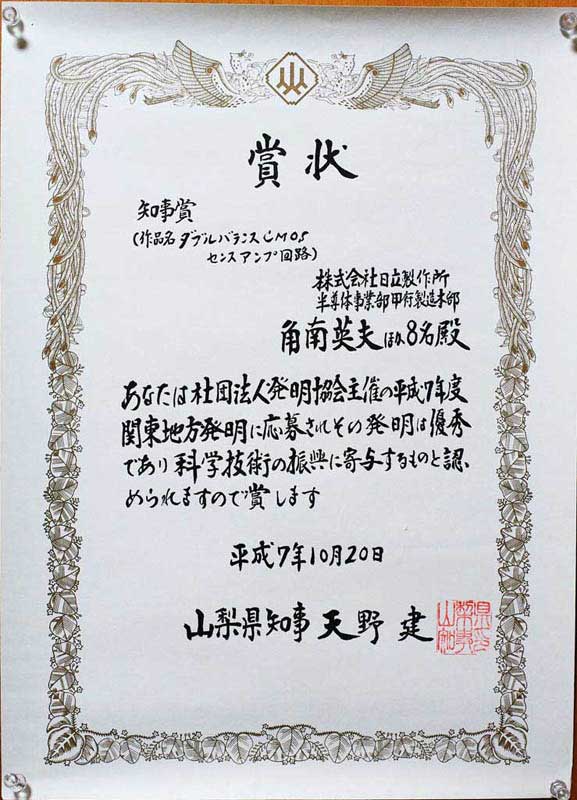 賞状
知事賞
(作品名 ダブルバランスCMOS
センスアンプ回路)
株式会社日立製作所
半導体事業部甲府製造本部
角南英夫ほか8名殿
あなたは社団法人発明協会主催の平成7年度
関東地方発明に応募されその発明は優秀
であり科学技術の振興に寄与するものと認
められますので賞します
平成7年10月20日
山梨県知事 天野 建